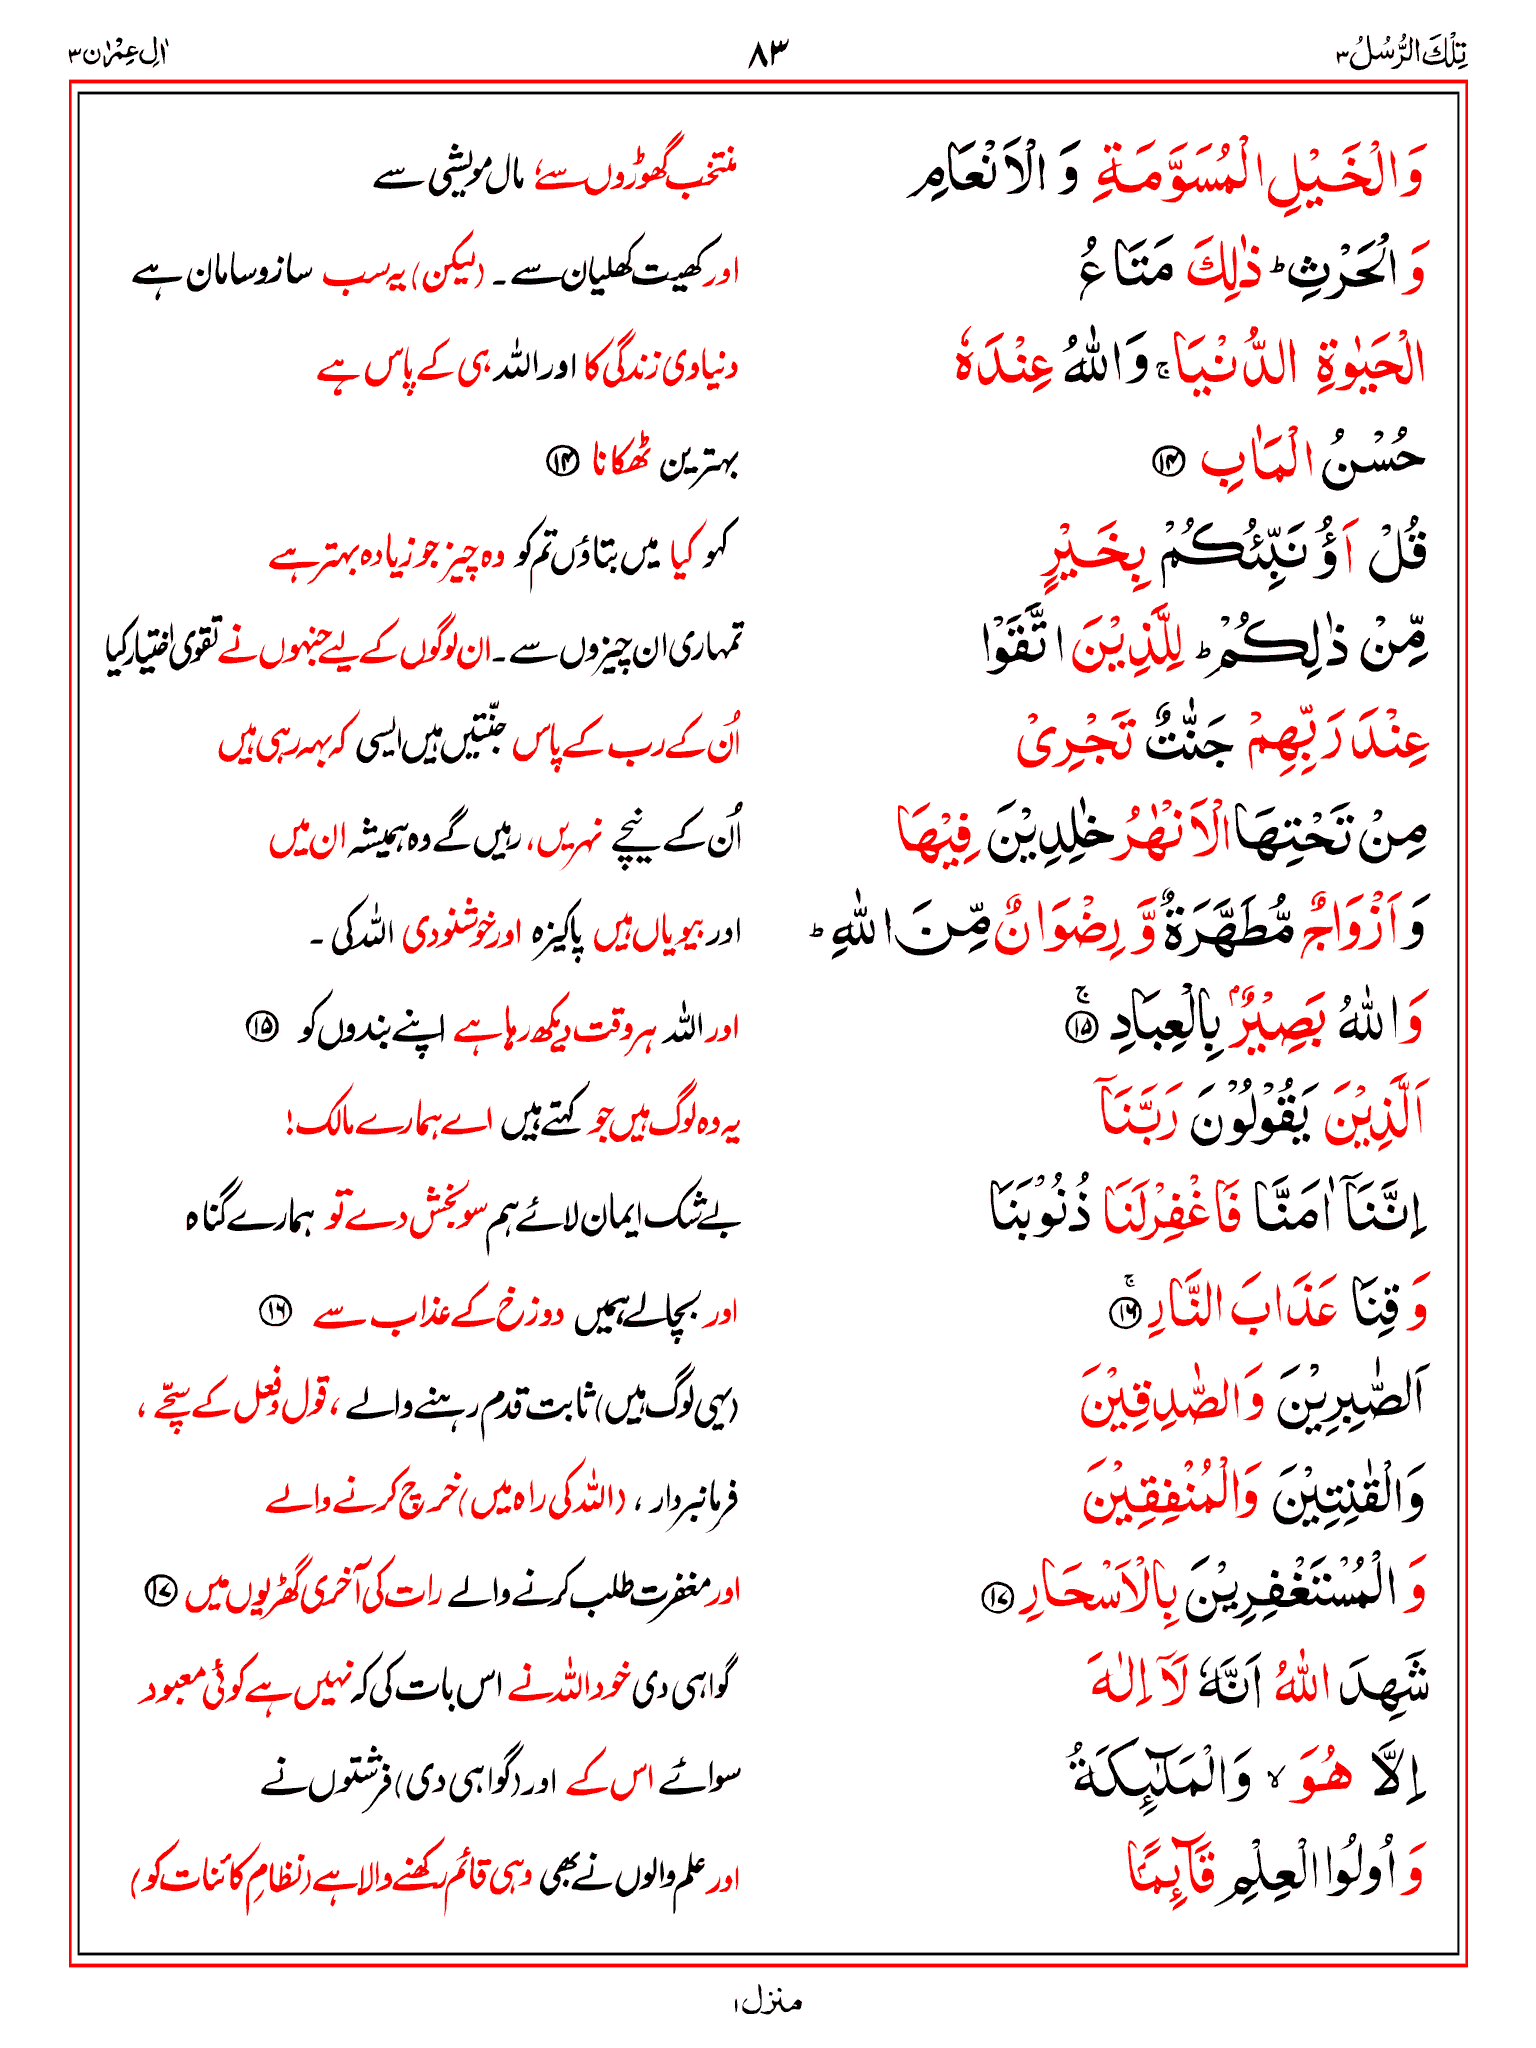 تِلْكَ الرُّسُلُ ۳ ۸۳ اٰلِ عِمْرٰن ۳
وَالْخَيْلِ الْمُسَوَّمَةِ وَ الْاَنْعَامِ منتخب گھوڑوں سے، مال مویشی سے
وَ الْحَرْثِ ؕ ذٰلِكَ مَتَاعُ اور کھیت کھلیان سے ۔ (لیکن) یہ سب ساز و سامان ہے
الْحَيٰوةِ الدُّنْيَا ۚ وَاللّٰهُ عِنْدَهٗ دنیاوی زندگی کا اور اللہ ہی کے پاس ہے
حُسْنُ الْمَاٰبِ ⑭ بہترین ٹھکانا ⑭
قُلْ اَؤُنَبِّئُكُمْ بِخَيْرٍ کہو کیا میں بتاؤں تم کو وہ چیز جو زیادہ بہتر ہے
مِّنْ ذٰلِكُمْ ؕ لِلَّذِيْنَ اتَّقَوْا تمہاری ان چیزوں سے ۔ ان لوگوں کے لیے جنہوں نے تقویٰ اختیار کیا
عِنْدَ رَبِّهِمْ جَنّٰتٌ تَجْرِىْ اُن کے رب کے پاس جنّتیں ہیں ایسی کہ بہہ رہی ہیں
مِنْ تَحْتِهَا الْاَنْهٰرُ خٰلِدِيْنَ فِيْهَا اُن کے نیچے نہریں، رہیں گے وہ ہمیشہ ان میں
وَ اَزْوَاجٌ مُّطَهَّرَةٌ وَّ رِضْوَانٌ مِّنَ اللّٰهِ ؕ اور بیویاں ہیں پاکیزہ اور خوشنودی اللہ کی ۔
وَ اللّٰهُ بَصِيْرٌۢ بِالْعِبَادِ ۚ⑮ اور اللہ ہر وقت دیکھ رہا ہے اپنے بندوں کو ⑮
اَلَّذِيْنَ يَقُوْلُوْنَ رَبَّنَاۤ یہ وہ لوگ ہیں جو کہتے ہیں اے ہمارے مالک!
اِنَّنَاۤ اٰمَنَّا فَاغْفِرْلَنَا ذُنُوْبَنَا بے شک ایمان لائے ہم سو بخش دے تو ہمارے گناہ
وَ قِنَا عَذَابَ النَّارِ ۚ⑯ اور بچالے ہمیں دوزخ کے عذاب سے ⑯
اَلصّٰبِرِيْنَ وَالصّٰدِقِيْنَ (یہی لوگ ہیں) ثابت قدم رہنے والے ، قول و فعل کے سچّے ،
وَالْقٰنِتِيْنَ وَالْمُنْفِقِيْنَ فرمانبردار ، (اللہ کی راہ میں) خرچ کرنے والے
وَ الْمُسْتَغْفِرِيْنَ بِالْاَسْحَارِ ⑰ اور مغفرت طلب کرنے والے رات کی آخری گھڑیوں میں ⑰
شَهِدَ اللّٰهُ اَنَّهٗ لَاۤ اِلٰهَ گواہی دی خود اللہ نے اس بات کی کہ نہیں ہے کوئی معبود
اِلَّا هُوَ ۙ وَالْمَلٰٓئِكَةُ سوائے اس کے اور (گواہی دی) فرشتوں نے
وَ اُولُوا الْعِلْمِ قَآئِمًۢا اور علم والوں نے بھی وہی قائم رکھنے والا ہے (نظامِ کائنات کو)
منزل ۱